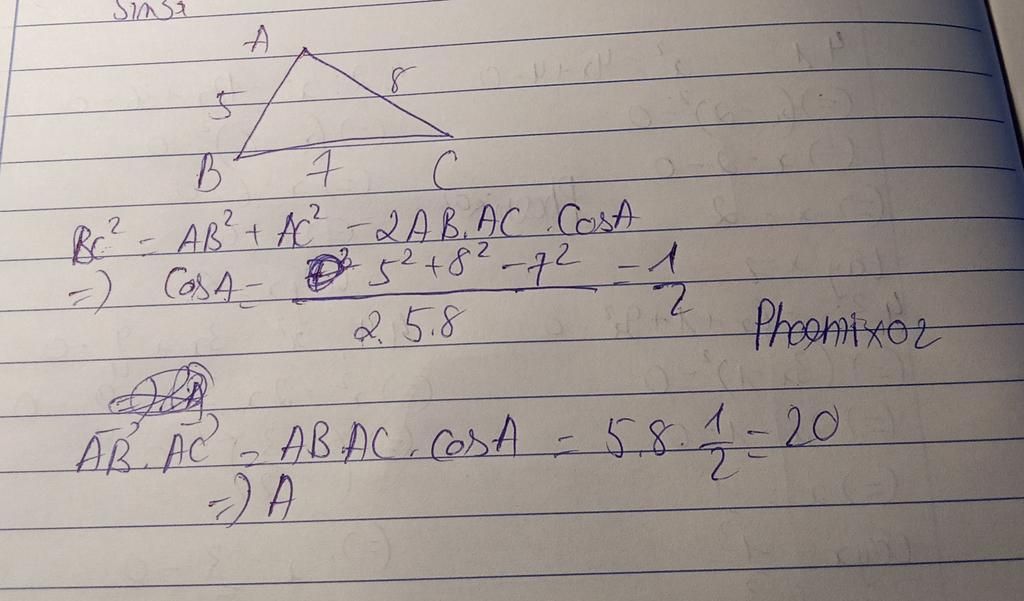 A
5
8
B
7
C
BC² = AB² + AC² - 2AB.AC.CosA
=) CosA = 5² + 8² - 7² / 2.5.8 = 1/2
Phoenix02
AB.AC = AB.AC.cosA = 5.8.1/2 = 20
=) A